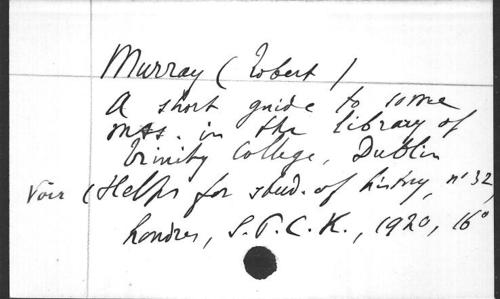 Murray (Robert)
A short guide to some
mss. in the library of
Trinity College, Dublin
Voir (Helps for stud. of history, n° 32)
Londres, S.P.C.K., 1920, 16°